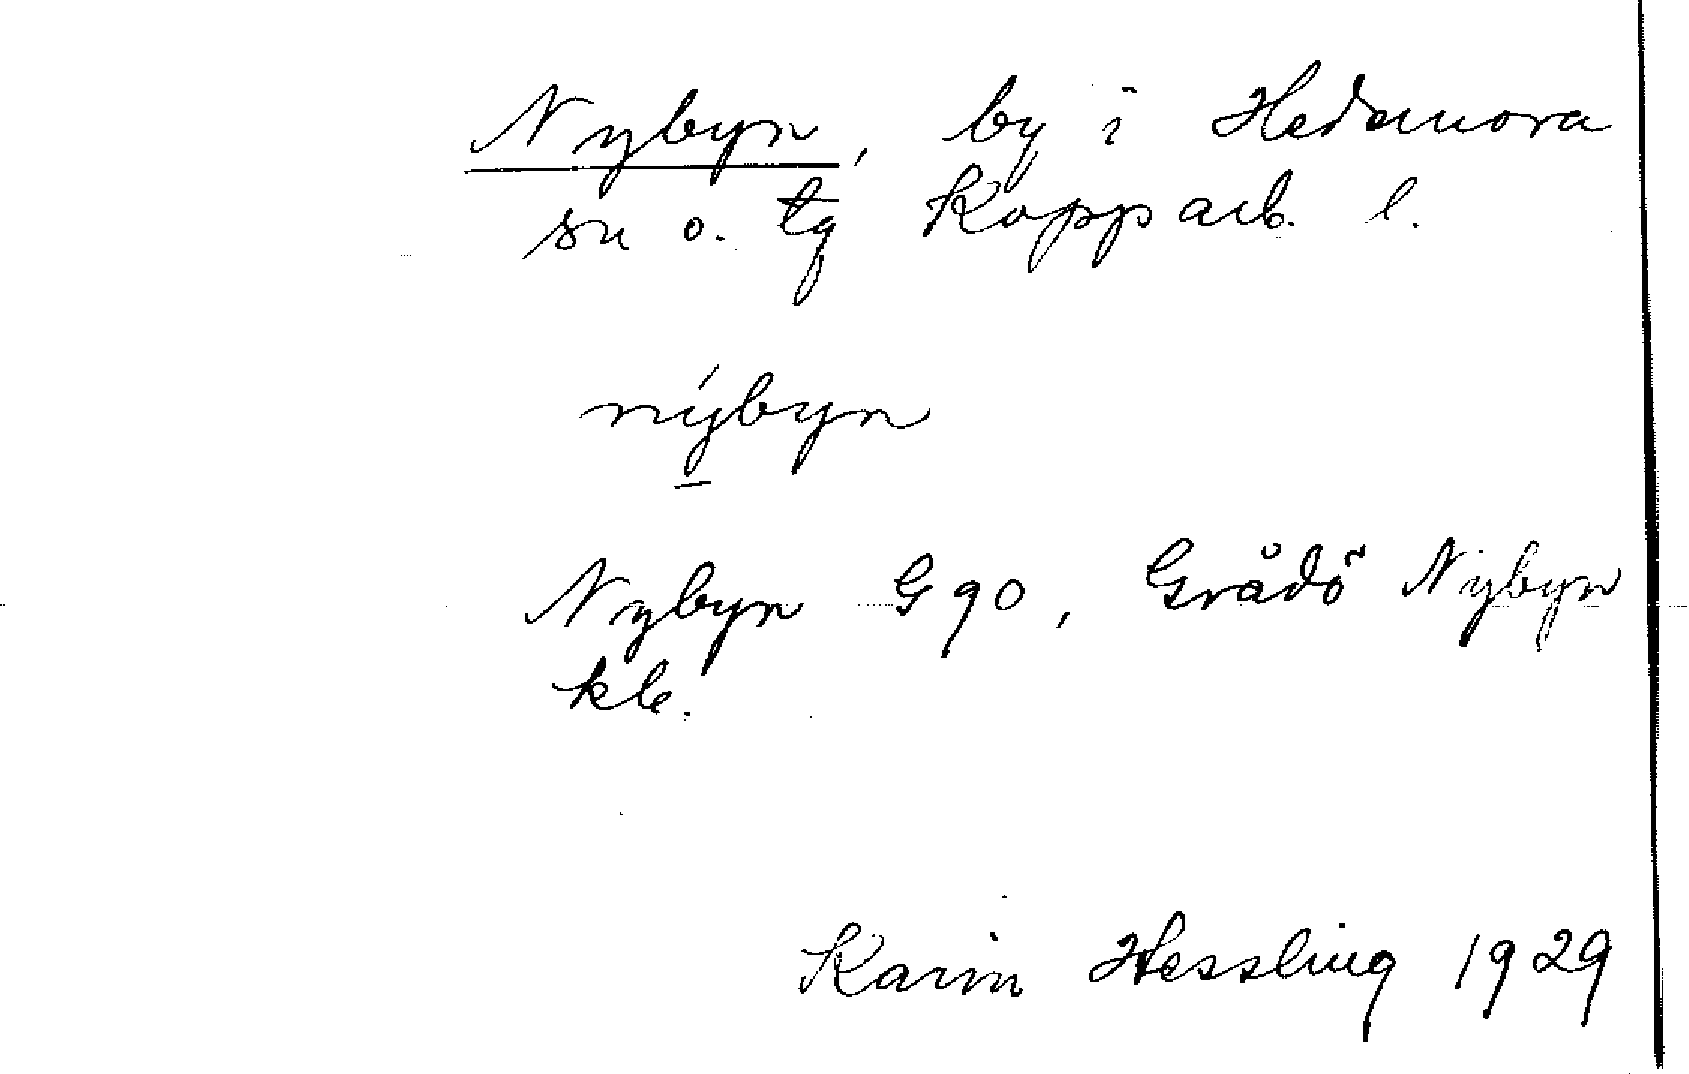 Nybyn, by i Hedemora
sn o. tg Kopparb. l.
nýbyn
Nybyn G 90, Grådö Nybyn
kb.
Karin Hessling 1929